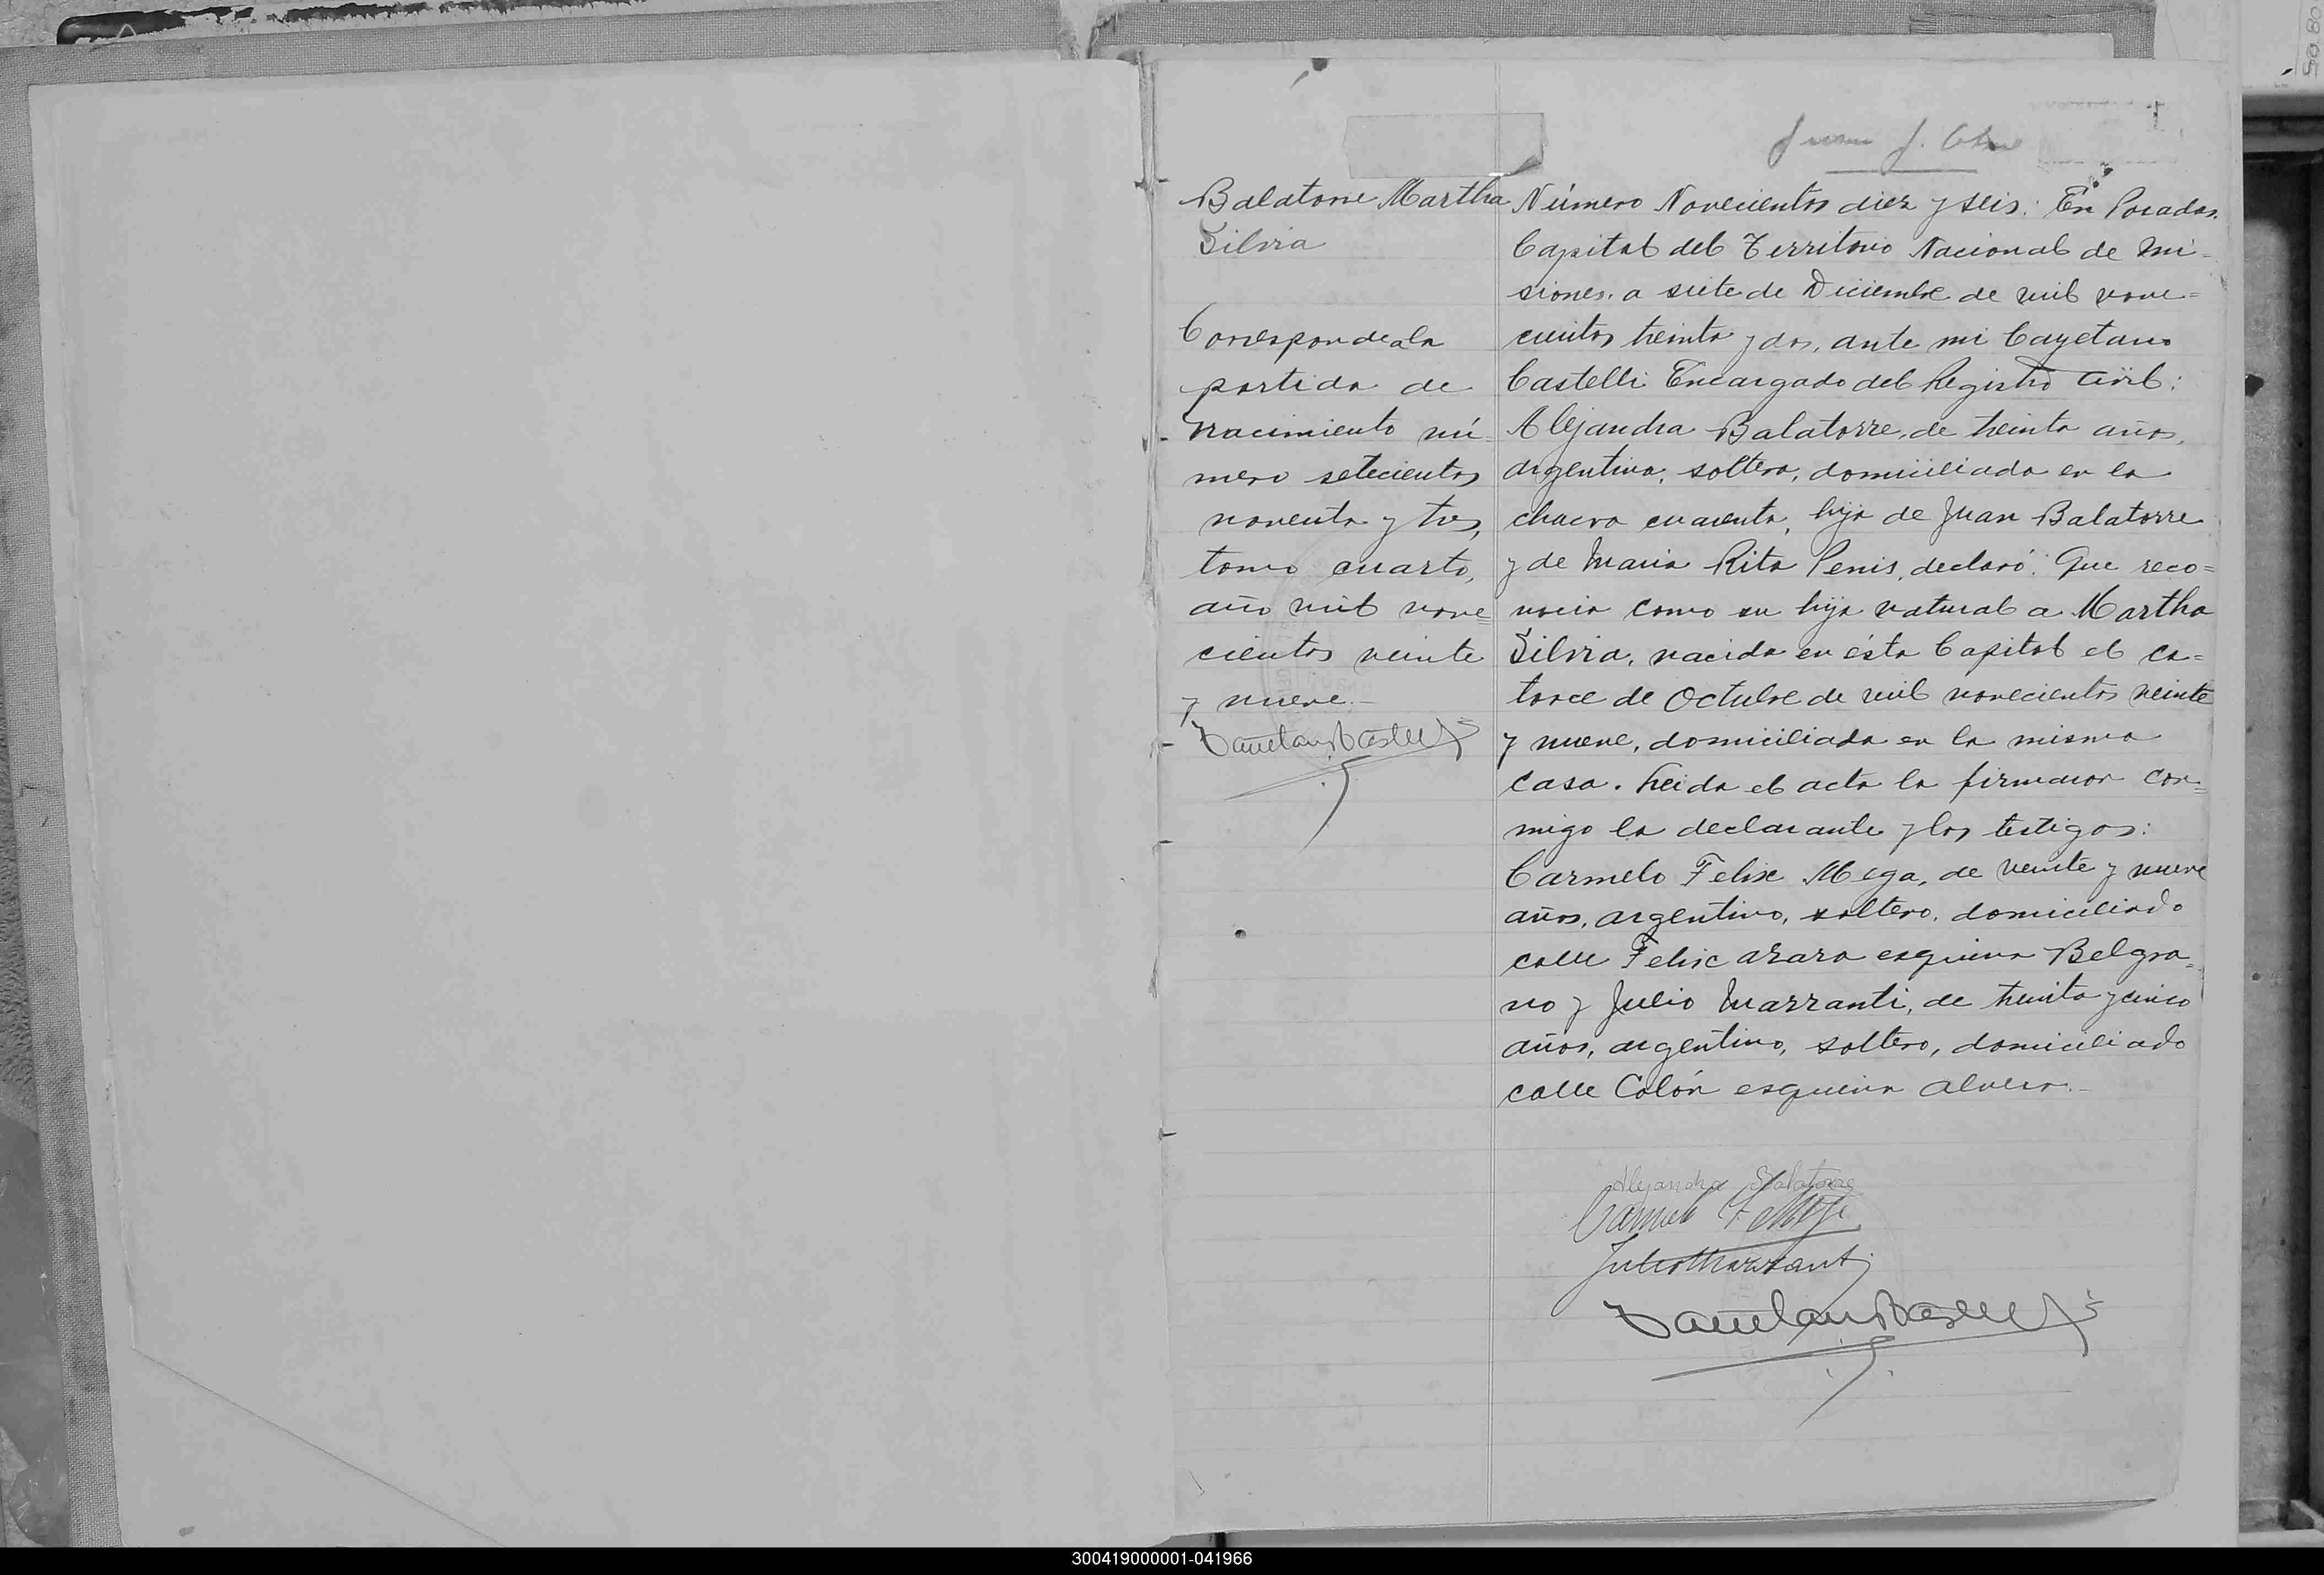 Balatorre Martha
Silvia
Corresponde a la
partida de
nacimiento nú-
mero setecientos
noventa y tres,
tomo cuarto,
año mil nove=
cientos veinte
y nueve.-
Juan J.
Número Novecientos diez y seis: En Posadas,
Capital del Territorio Nacional de Mi=
siones, a siete de Diciembre de mil nove=
cientos treinta y dos, ante mi Cayetano
Castelli Encargado del Registro Civil:
Alejandra Balatorre, de treinta años,
argentina, soltera, domiciliada en la
chacra cuarenta, hija de Juan Balatorre
y de Maria Rita Penis, declaró: Que reco=
nocia como su hija natural a Martha
Silvia, nacida en ésta Capital el ca=
torce de Octubre de mil novecientos veinte
y nueve, domiciliada en la misma
casa. Leida el acta la firmaron con=
migo la declarante y los testigos:
Carmelo Felix Mega, de veinte y nueve
años, argentino, soltero, domiciliado
calle Felix azara esquina Belgra=
no y Julio Marranti, de treinta y cinco
años, argentino, soltero, domiciliado
calle Colón esquina alvear.-
Alejandra Balatorre
Carmelo F.
Julio Marranti
300419000001-041966